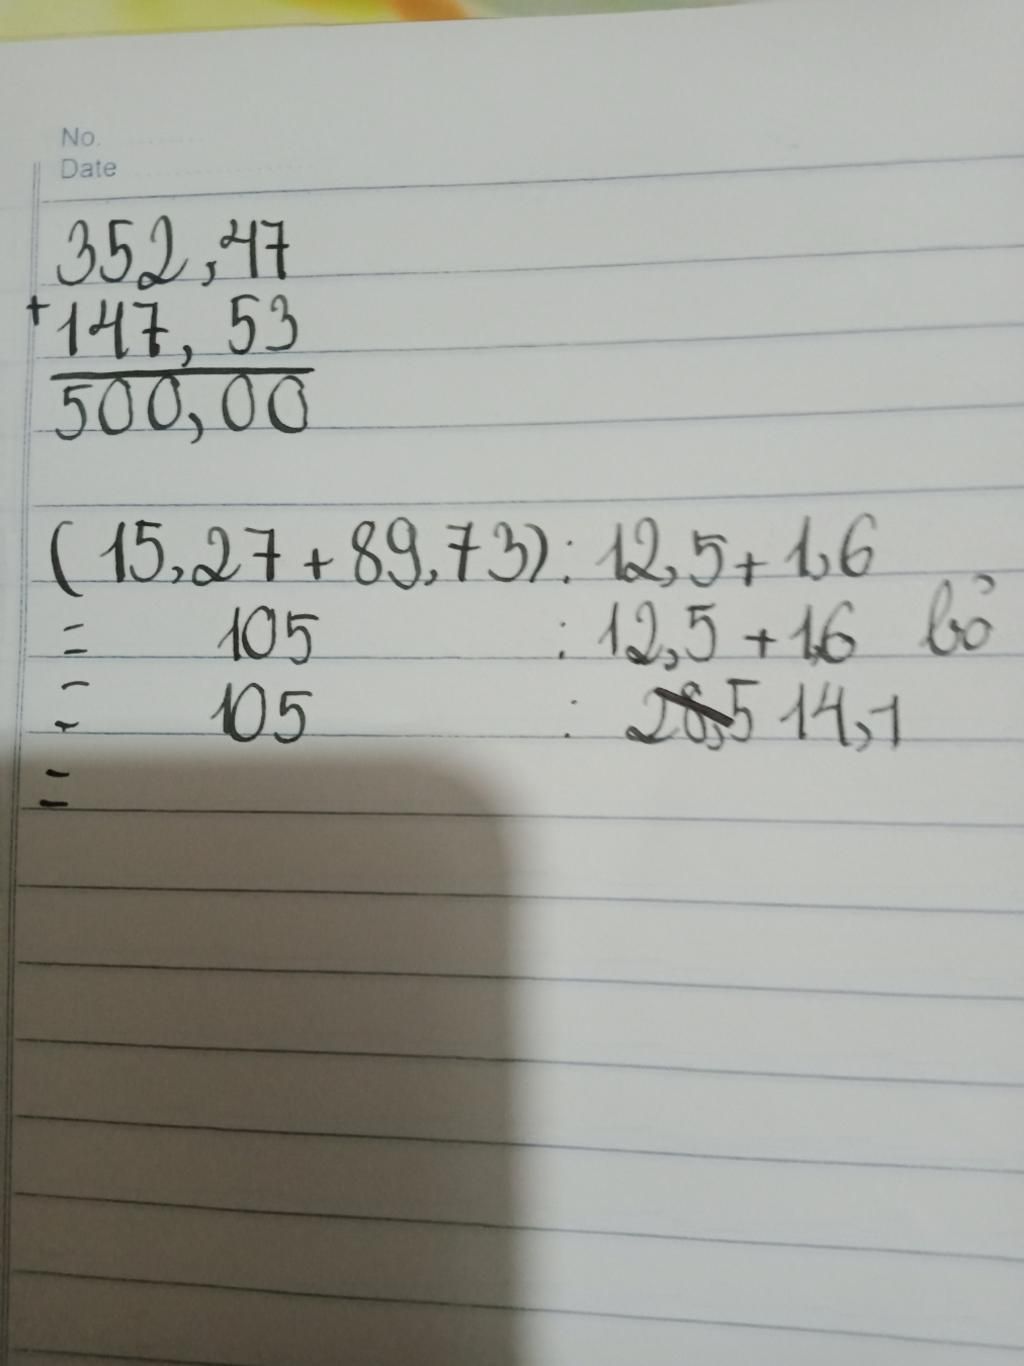 No.
Date
352,47
+
147,53
500,00
(15,27+89,73): 12,5+1,6
= 105 : 12,5+1,6 bỏ
= 105 : 28,5 14,1
=